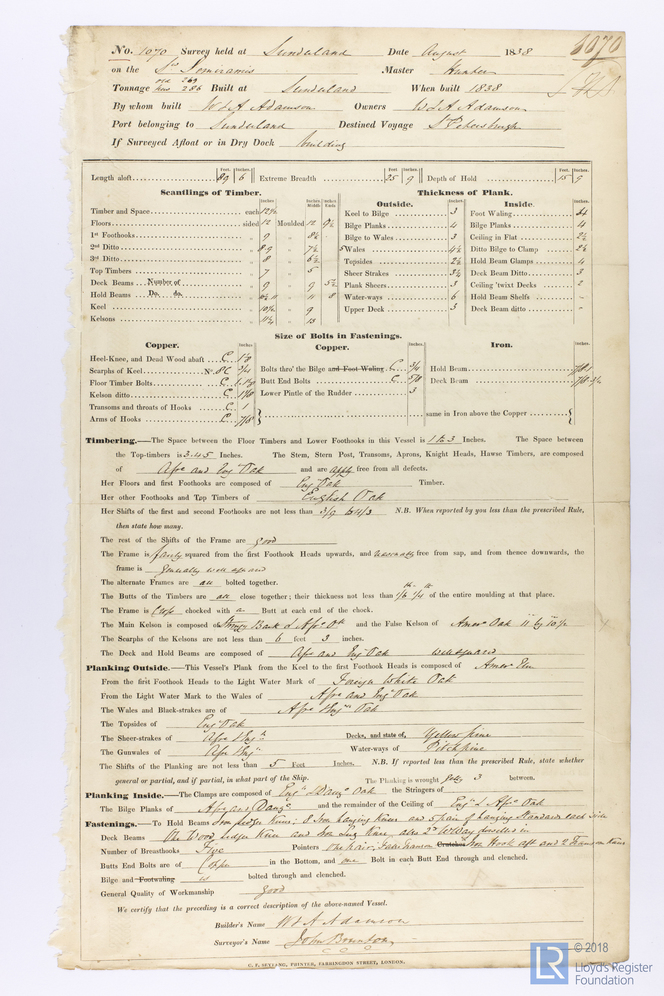 No. 1070 Survey held at Sunderland Date August 1838 1070
on the Master Hunter
Tonnage old 269 new 286 Built at Sunderland When built 1838
By whom built W & A Adamson Owners W & A Adamson
Port belonging to Sunderland Destined Voyage St Petersburgh
If Surveyed Afloat or in Dry Dock building
Feet. Inches. Feet. Inches. Feet. Inches.
Length aloft 89 6 Extreme Breadth 25 9 Depth of Hold 15 9
Scantlings of Timber. Thickness of Plank.
Outside. Inside.
Timber and Space each Keel to Bilge 3 Foot Waling
Floors sided 12 Moulded 12 Bilge Planks 4 Bilge Planks 4
1st Foothooks 9 8½ Bilge to Wales 3 Ceiling in Flat 2½
2nd Ditto 7½ Wales 4½ Ditto Bilge to Clamp 2½
3rd Ditto 8 6½ Topsides 2½ Hold Beam Clamps 4
Top Timbers 7 5 Sheer Strakes 3½ Deck Beam Ditto 3
Deck Beams Number of 9 9 5½ Plank Sheers 3 Ceiling 'twixt Decks 2
Hold Beams Do. do. 11 8 Water-ways 6 Hold Beam Shelfs -
Keel 9 Upper Deck 3 Deck Beam ditto -
Kelsons 13
Size of Bolts in Fastenings.
Copper. Copper. Iron.
Heel-Knee, and Dead Wood abaft C
Scarphs of Keel No. C 3/4 Bolts thro' the Bilge and Foot Waling C 3/4 Hold Beam
Floor Timber Bolts C Butt End Bolts C 5/8 Deck Beam
Kelson ditto C Lower Pintle of the Rudder 3
Transoms and throats of Hooks C 1 same in Iron above the Copper
Arms of Hooks C 7/8
Timbering.—The Space between the Floor Timbers and Lower Foothooks in this Vessel is 1 to 3 Inches. The Space between
the Top-timbers is 3.4.5 Inches. The Stem, Stern Post, Transoms, Aprons, Knight Heads, Hawse Timbers, are composed
of Afrn and Eng Oak and are free from all defects.
Her Floors and first Foothooks are composed of Eng Oak Timber.
Her other Foothooks and Top Timbers of English Oak
Her Shifts of the first and second Foothooks are not less than N.B. When reported by you less than the prescribed Rule,
then state how many.
The rest of the Shifts of the Frame are good
The Frame is fairly squared from the first Foothook Heads upwards, and free from sap, and from thence downwards, the
frame is generally well squared
The alternate Frames are all bolted together.
The Butts of the Timbers are all close together; their thickness not less than of the entire moulding at that place.
The Frame is chocked with a Butt at each end of the chock.
The Main Kelson is composed of and the False Kelson of Amer Oak 11 by 10½
The Scarphs of the Kelsons are not less than 6 feet 3 inches.
The Deck and Hold Beams are composed of Afrn and Eng Oak well squared
Planking Outside.—This Vessel's Plank from the Keel to the first Foothook Heads is composed of Amer Elm
From the first Foothook Heads to the Light Water Mark of Foreign White Oak
From the Light Water Mark to the Wales of Afrn and Eng Oak
The Wales and Black-strakes are of Afrn & Eng Oak
The Topsides of Eng Oak
The Sheer-strakes of Afrn & Eng Decks, and state of, Yellow pine
The Gunwales of Afrn & Eng Water-ways of Pitch pine
The Shifts of the Planking are not less than 5 Feet Inches. N.B. If reported less than the prescribed Rule, state whether
general or partial, and if partial, in what part of the Ship. The Planking is wrought 3 between.
Planking Inside.—The Clamps are composed of Eng & Danz Oak the Stringers of
The Bilge Planks of Afrn and Danz and the remainder of the Ceiling of Eng & Afrn Oak
Fastenings.—To Hold Beams Iron Lodge Knees, 8 Iron hanging Knees and 5 pair of hanging Standards each side
Deck Beams Wood Lodge Knees and Iron Knees, also
Number of Breasthooks Five Pointers One pair, Crutches Iron Hook aft and 2 Transom Knees
Butts End Bolts are of Copper in the Bottom, and one Bolt in each Butt End through and clenched.
Bilge and Footwaling bolted through and clenched.
General Quality of Workmanship good
We certify that the preceding is a correct description of the above-named Vessel.
Builder's Name W & A Adamson
Surveyor's Name John Brunton
C. F. SEYFANG, PRINTER, FARRINGDON STREET, LONDON.
LR © 2018
Lloyd's Register
Foundation